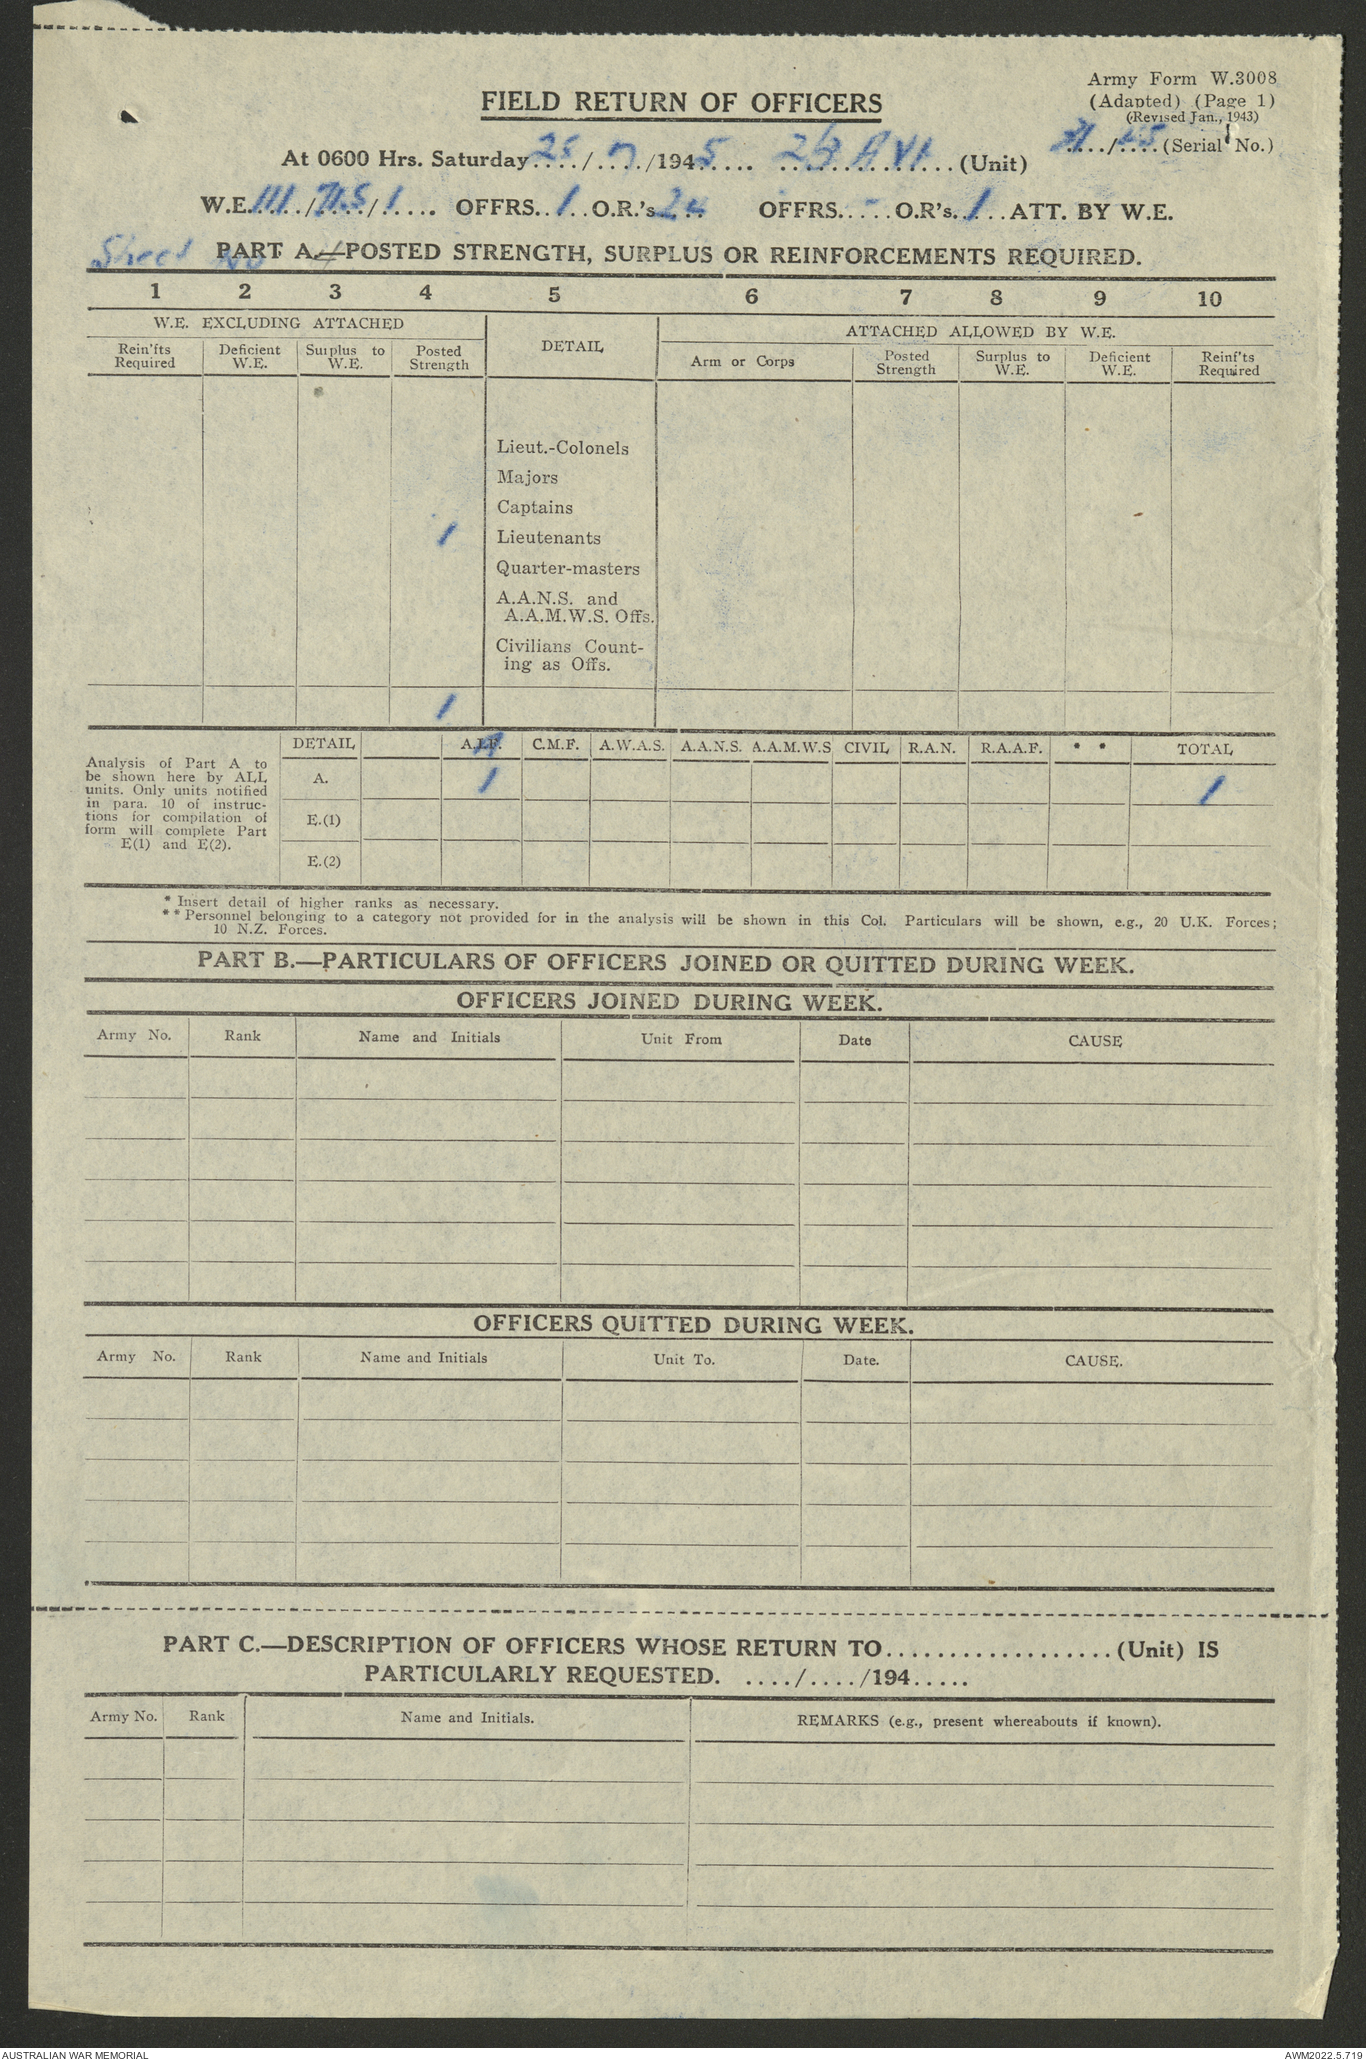 Army Form W.3008
(Adapted) (Page 1)
(Revised Jan., 1943)
FIELD RETURN OF OFFICERS
At 0600 Hrs. Saturday 28/7/1945 (Unit) 31/45 (Serial No.)
W.E. 111/715/1 OFFRS. 1 O.R.'s 24 OFFRS. - O.R's. 1 ATT. BY W.E.
Sheet No 4
PART A.—POSTED STRENGTH, SURPLUS OR REINFORCEMENTS REQUIRED.
1 2 3 4 5 6 7 8 9 10
W.E. EXCLUDING ATTACHED DETAIL ATTACHED ALLOWED BY W.E.
Rein'fts Required Deficient W.E. Surplus to W.E. Posted Strength Arm or Corps Posted Strength Surplus to W.E. Deficient W.E. Reinf'ts Required
Lieut.-Colonels
Majors
Captains
1 Lieutenants
Quarter-masters
A.A.N.S. and
A.A.M.W.S. Offs.
Civilians Count-
ing as Offs.
1
DETAIL A.I.F. C.M.F. A.W.A.S. A.A.N.S. A.A.M.W.S CIVIL R.A.N. R.A.A.F. * * TOTAL
Analysis of Part A to
be shown here by ALL
units. Only units notified
in para. 10 of instruc-
tions for compilation of
form will complete Part
E(1) and E(2).
A. 1 1
E.(1)
E.(2)
* Insert detail of higher ranks as necessary.
** Personnel belonging to a category not provided for in the analysis will be shown in this Col. Particulars will be shown, e.g., 20 U.K. Forces;
10 N.Z. Forces.
PART B.—PARTICULARS OF OFFICERS JOINED OR QUITTED DURING WEEK.
OFFICERS JOINED DURING WEEK.
Army No. Rank Name and Initials Unit From Date CAUSE
OFFICERS QUITTED DURING WEEK.
Army No. Rank Name and Initials Unit To. Date. CAUSE.
PART C.—DESCRIPTION OF OFFICERS WHOSE RETURN TO.................. (Unit) IS
PARTICULARLY REQUESTED. ..../..../194.....
Army No. Rank Name and Initials. REMARKS (e.g., present whereabouts if known).
AUSTRALIAN WAR MEMORIAL AWM2022.5.719